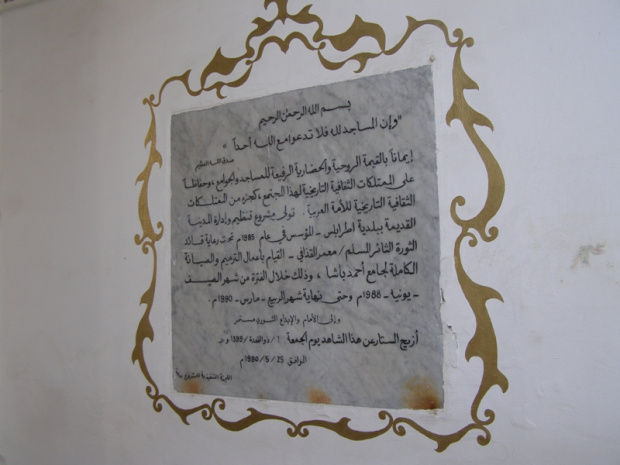 بسم الله الرحمن الرحيم
"وإن المساجد لله فلا تدعوا مع الله أحداً"
صدق الله العظيم
إيماناً بالقيمة الروحية والحضارية الرفيعة للمساجد والجوامع، وحفاظاً
على الممتلكات الثقافية التاريخية لهذا المجتمع، كجزء من الممتلكات
الثقافية التاريخية للأمة العربية. تولى مشروع تنظيم وإدارة المدينة
القديمة ببلدية اطرابلس - المؤسس في عام 1985م تحت رعاية قائد
الثورة الثائر المسلم / معمر القذافي - القيام بأعمال الترميم والصيانة
الكاملة لجامع أحمد باشا، وذلك خلال الفترة من شهر الصيف
- يونيا - 1988م وحتى نهاية شهر الربيع - مارس - 1990م.
وإلى الأمام والإبداع الثوري مستمر
أزيح الستار عن هذا الشاهد يوم الجمعة 1 / ذو القعدة /
الموافق 25 / 5 / 1990م